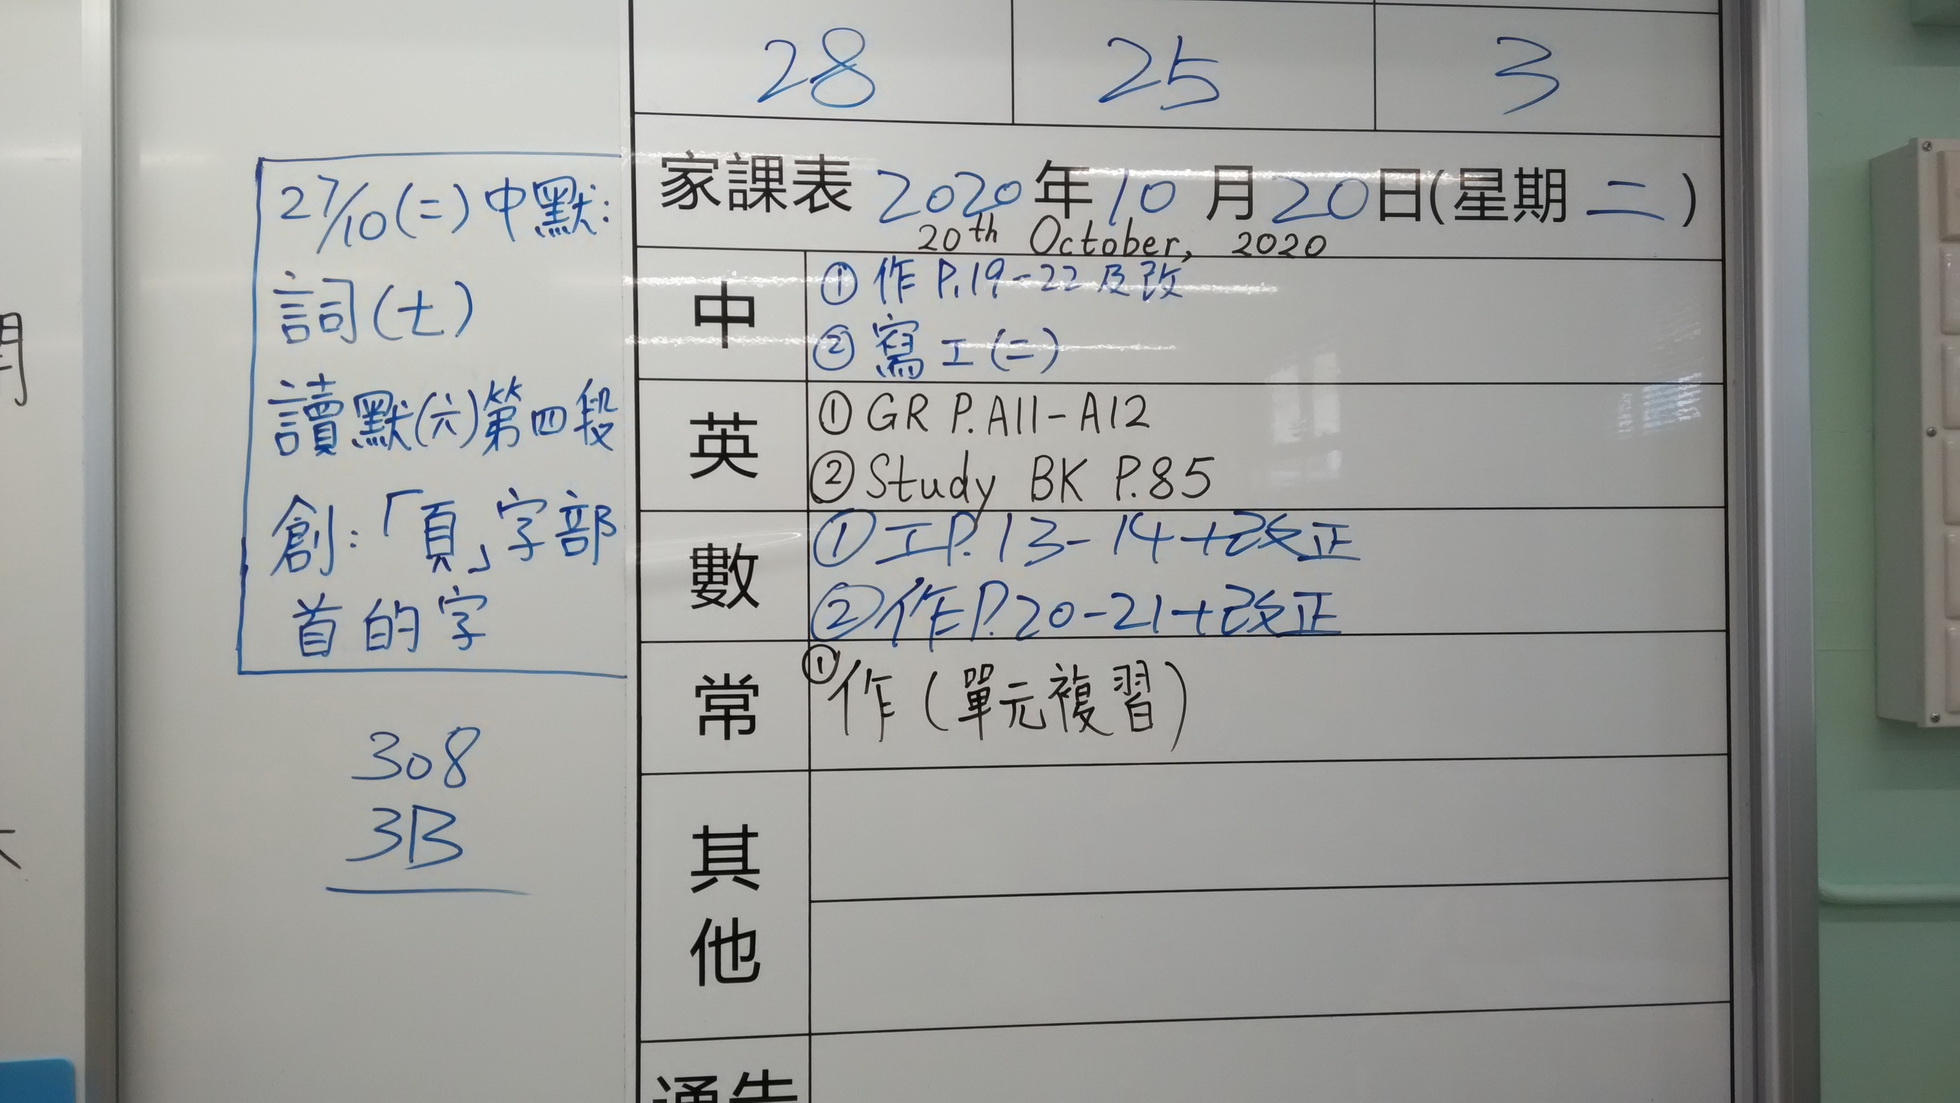 28 25 3
家課表 2020年10月20日(星期二)
20th October, 2020
中
① 作 P.19-22及改
② 寫工(二)
英
① GR P.A11-A12
② Study BK P.85
數
① 工P.13-14+改正
② 作P.20-21+改正
常
① 作(單元複習)
其他
通告
27/10(二)中默:
詞(七)
讀默(六)第四段
創:「頁」字部
首的字
308
3B